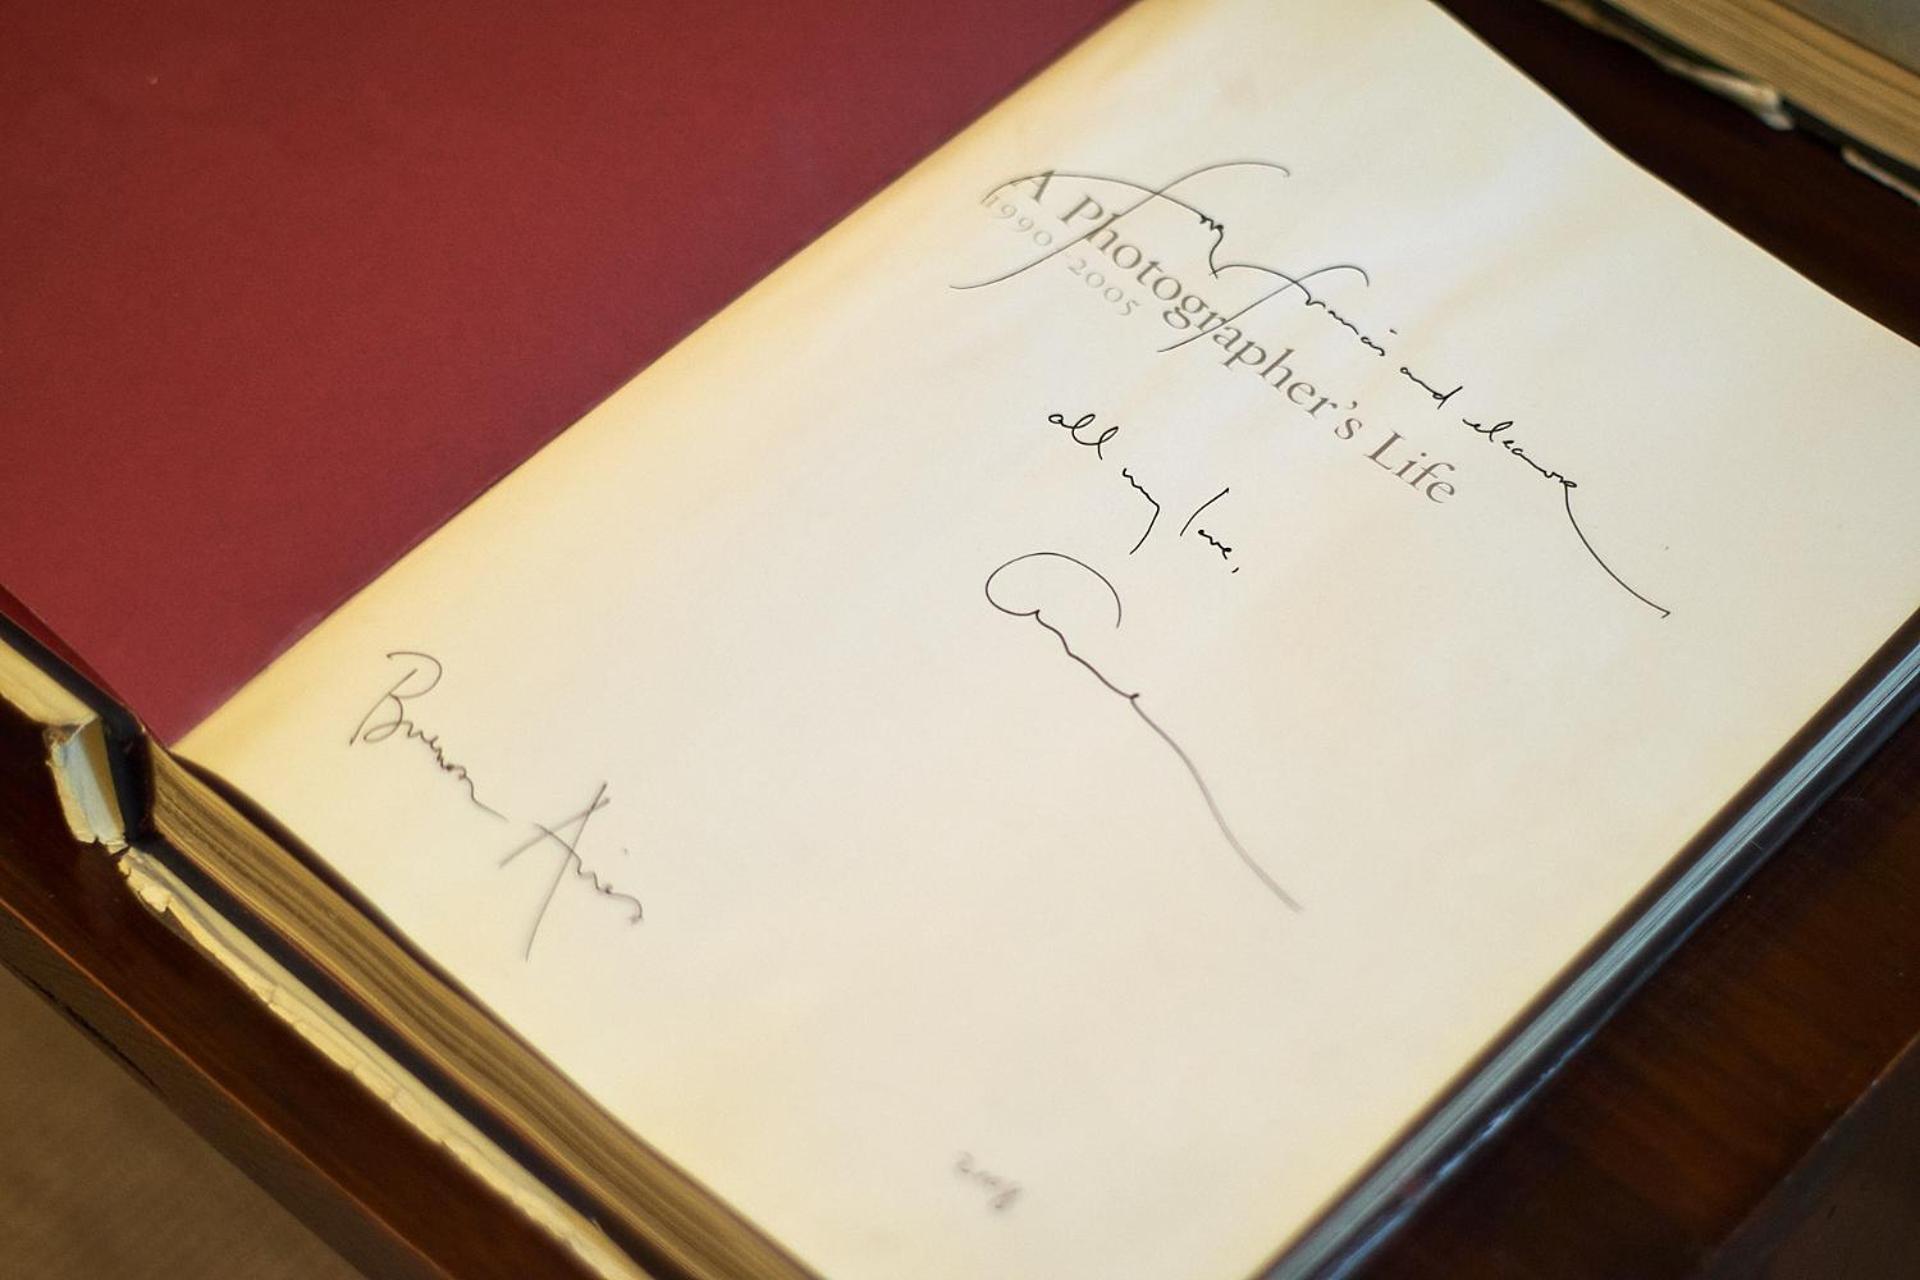 A Photographer's Life
1990–2005
for francis and eleanor
all my love,
Annie
Buenos Aires
2008